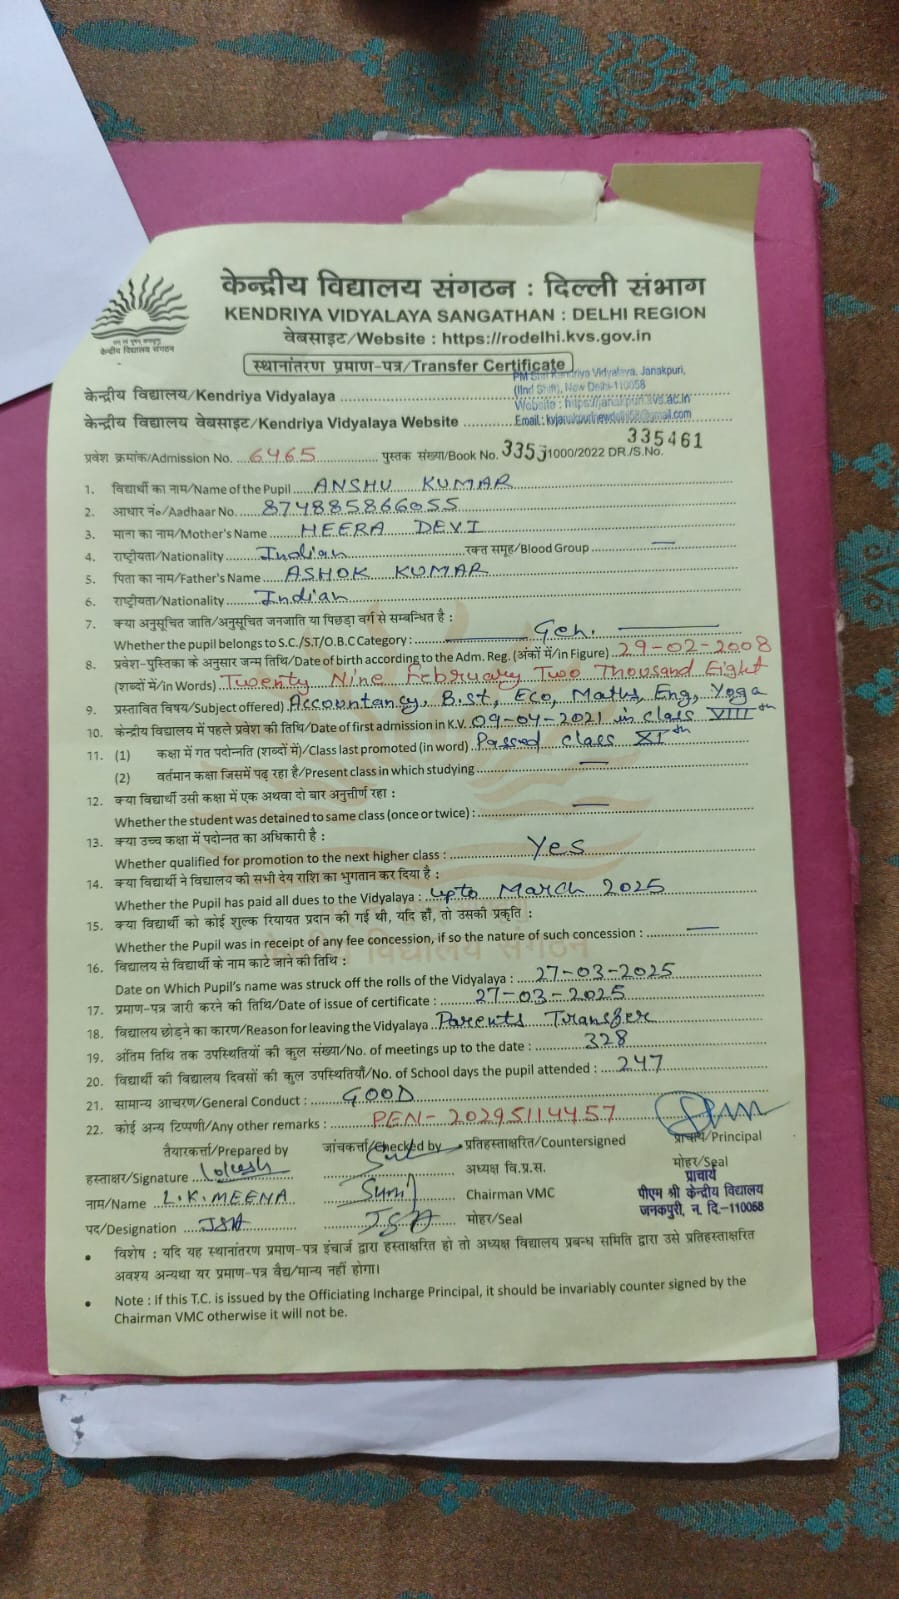 केन्द्रीय विद्यालय संगठन : दिल्ली संभाग
KENDRIYA VIDYALAYA SANGATHAN : DELHI REGION
केन्द्रीय विद्यालय संगठन
वेबसाइट/Website : https://rodelhi.kvs.gov.in
स्थानांतरण प्रमाण-पत्र/Transfer Certificate
PM Shri Kendriya Vidyalaya, Janakpuri,
(IInd Shift), New Delhi-110058
केन्द्रीय विद्यालय/Kendriya Vidyalaya
Website : https://janakpuri.kvs.ac.in
केन्द्रीय विद्यालय वेबसाइट/Kendriya Vidyalaya Website
प्रवेश क्रमांक/Admission No. 6465 पुस्तक संख्या/Book No. 3355 1000/2022 DR./S.No. 335461
1. विद्यार्थी का नाम/Name of the Pupil ANSHU KUMAR
2. आधार नं०/Aadhaar No. 874885866055
3. माता का नाम/Mother's Name HEERA DEVI
4. राष्ट्रीयता/Nationality Indian रक्त समूह/Blood Group —
5. पिता का नाम/Father's Name ASHOK KUMAR
6. राष्ट्रीयता/Nationality Indian
7. क्या अनुसूचित जाति/अनुसूचित जनजाति या पिछड़ा वर्ग से सम्बन्धित है :
Whether the pupil belongs to S.C./S.T/O.B.C Category : Gen.
8. प्रवेश-पुस्तिका के अनुसार जन्म तिथि/Date of birth according to the Adm. Reg. (अंकों में/in Figure) 29-02-2008
(शब्दों में/in Words) Twenty Nine February Two Thousand Eight
9. प्रस्तावित विषय/Subject offered) Accountancy, B.st, Eco, Maths, Eng, Yoga
10. केन्द्रीय विद्यालय में पहले प्रवेश की तिथि/Date of first admission in K.V. 09-04-2021 in class VIIIth
11. (1) कक्षा में गत पदोन्नति (शब्दों में)/Class last promoted (in word) Passed class XIth
(2) वर्तमान कक्षा जिसमें पढ़ रहा है/Present class in which studying —
12. क्या विद्यार्थी उसी कक्षा में एक अथवा दो बार अनुत्तीर्ण रहा :
Whether the student was detained to same class (once or twice) : —
13. क्या उच्च कक्षा में पदोन्नत का अधिकारी है :
Whether qualified for promotion to the next higher class : Yes
14. क्या विद्यार्थी ने विद्यालय की सभी देय राशि का भुगतान कर दिया है :
Whether the Pupil has paid all dues to the Vidyalaya : upto March 2025
15. क्या विद्यार्थी को कोई शुल्क रियायत प्रदान की गई थी, यदि हाँ, तो उसकी प्रकृति :
Whether the Pupil was in receipt of any fee concession, if so the nature of such concession : —
16. विद्यालय से विद्यार्थी के नाम काटे जाने की तिथि :
Date on Which Pupil's name was struck off the rolls of the Vidyalaya : 27-03-2025
17. प्रमाण-पत्र जारी करने की तिथि/Date of issue of certificate : 27-03-2025
18. विद्यालय छोड़ने का कारण/Reason for leaving the Vidyalaya Parents Transfer
19. अंतिम तिथि तक उपस्थितियों की कुल संख्या/No. of meetings up to the date : 328
20. विद्यार्थी की विद्यालय दिवसों की कुल उपस्थितियाँ/No. of School days the pupil attended : 247
21. सामान्य आचरण/General Conduct : GOOD
22. कोई अन्य टिप्पणी/Any other remarks : PEN- 20295114457
तैयारकर्त्ता/Prepared by जांचकर्त्ता/Checked by प्रतिहस्ताक्षरित/Countersigned प्राचार्य/Principal
हस्ताक्षर/Signature Lokesh अध्यक्ष वि.प्र.स. मोहर/Seal
प्राचार्य
नाम/Name L.K.MEENA Sunil Chairman VMC पीएम श्री केन्द्रीय विद्यालय
पद/Designation JSA JSA मोहर/Seal जनकपुरी, न. दि.-110058
• विशेष : यदि यह स्थानांतरण प्रमाण-पत्र इंचार्ज द्वारा हस्ताक्षरित हो तो अध्यक्ष विद्यालय प्रबन्ध समिति द्वारा उसे प्रतिहस्ताक्षरित
अवश्य अन्यथा यर प्रमाण-पत्र वैद्य/मान्य नहीं होगा।
• Note : If this T.C. is issued by the Officiating Incharge Principal, it should be invariably counter signed by the
Chairman VMC otherwise it will not be.